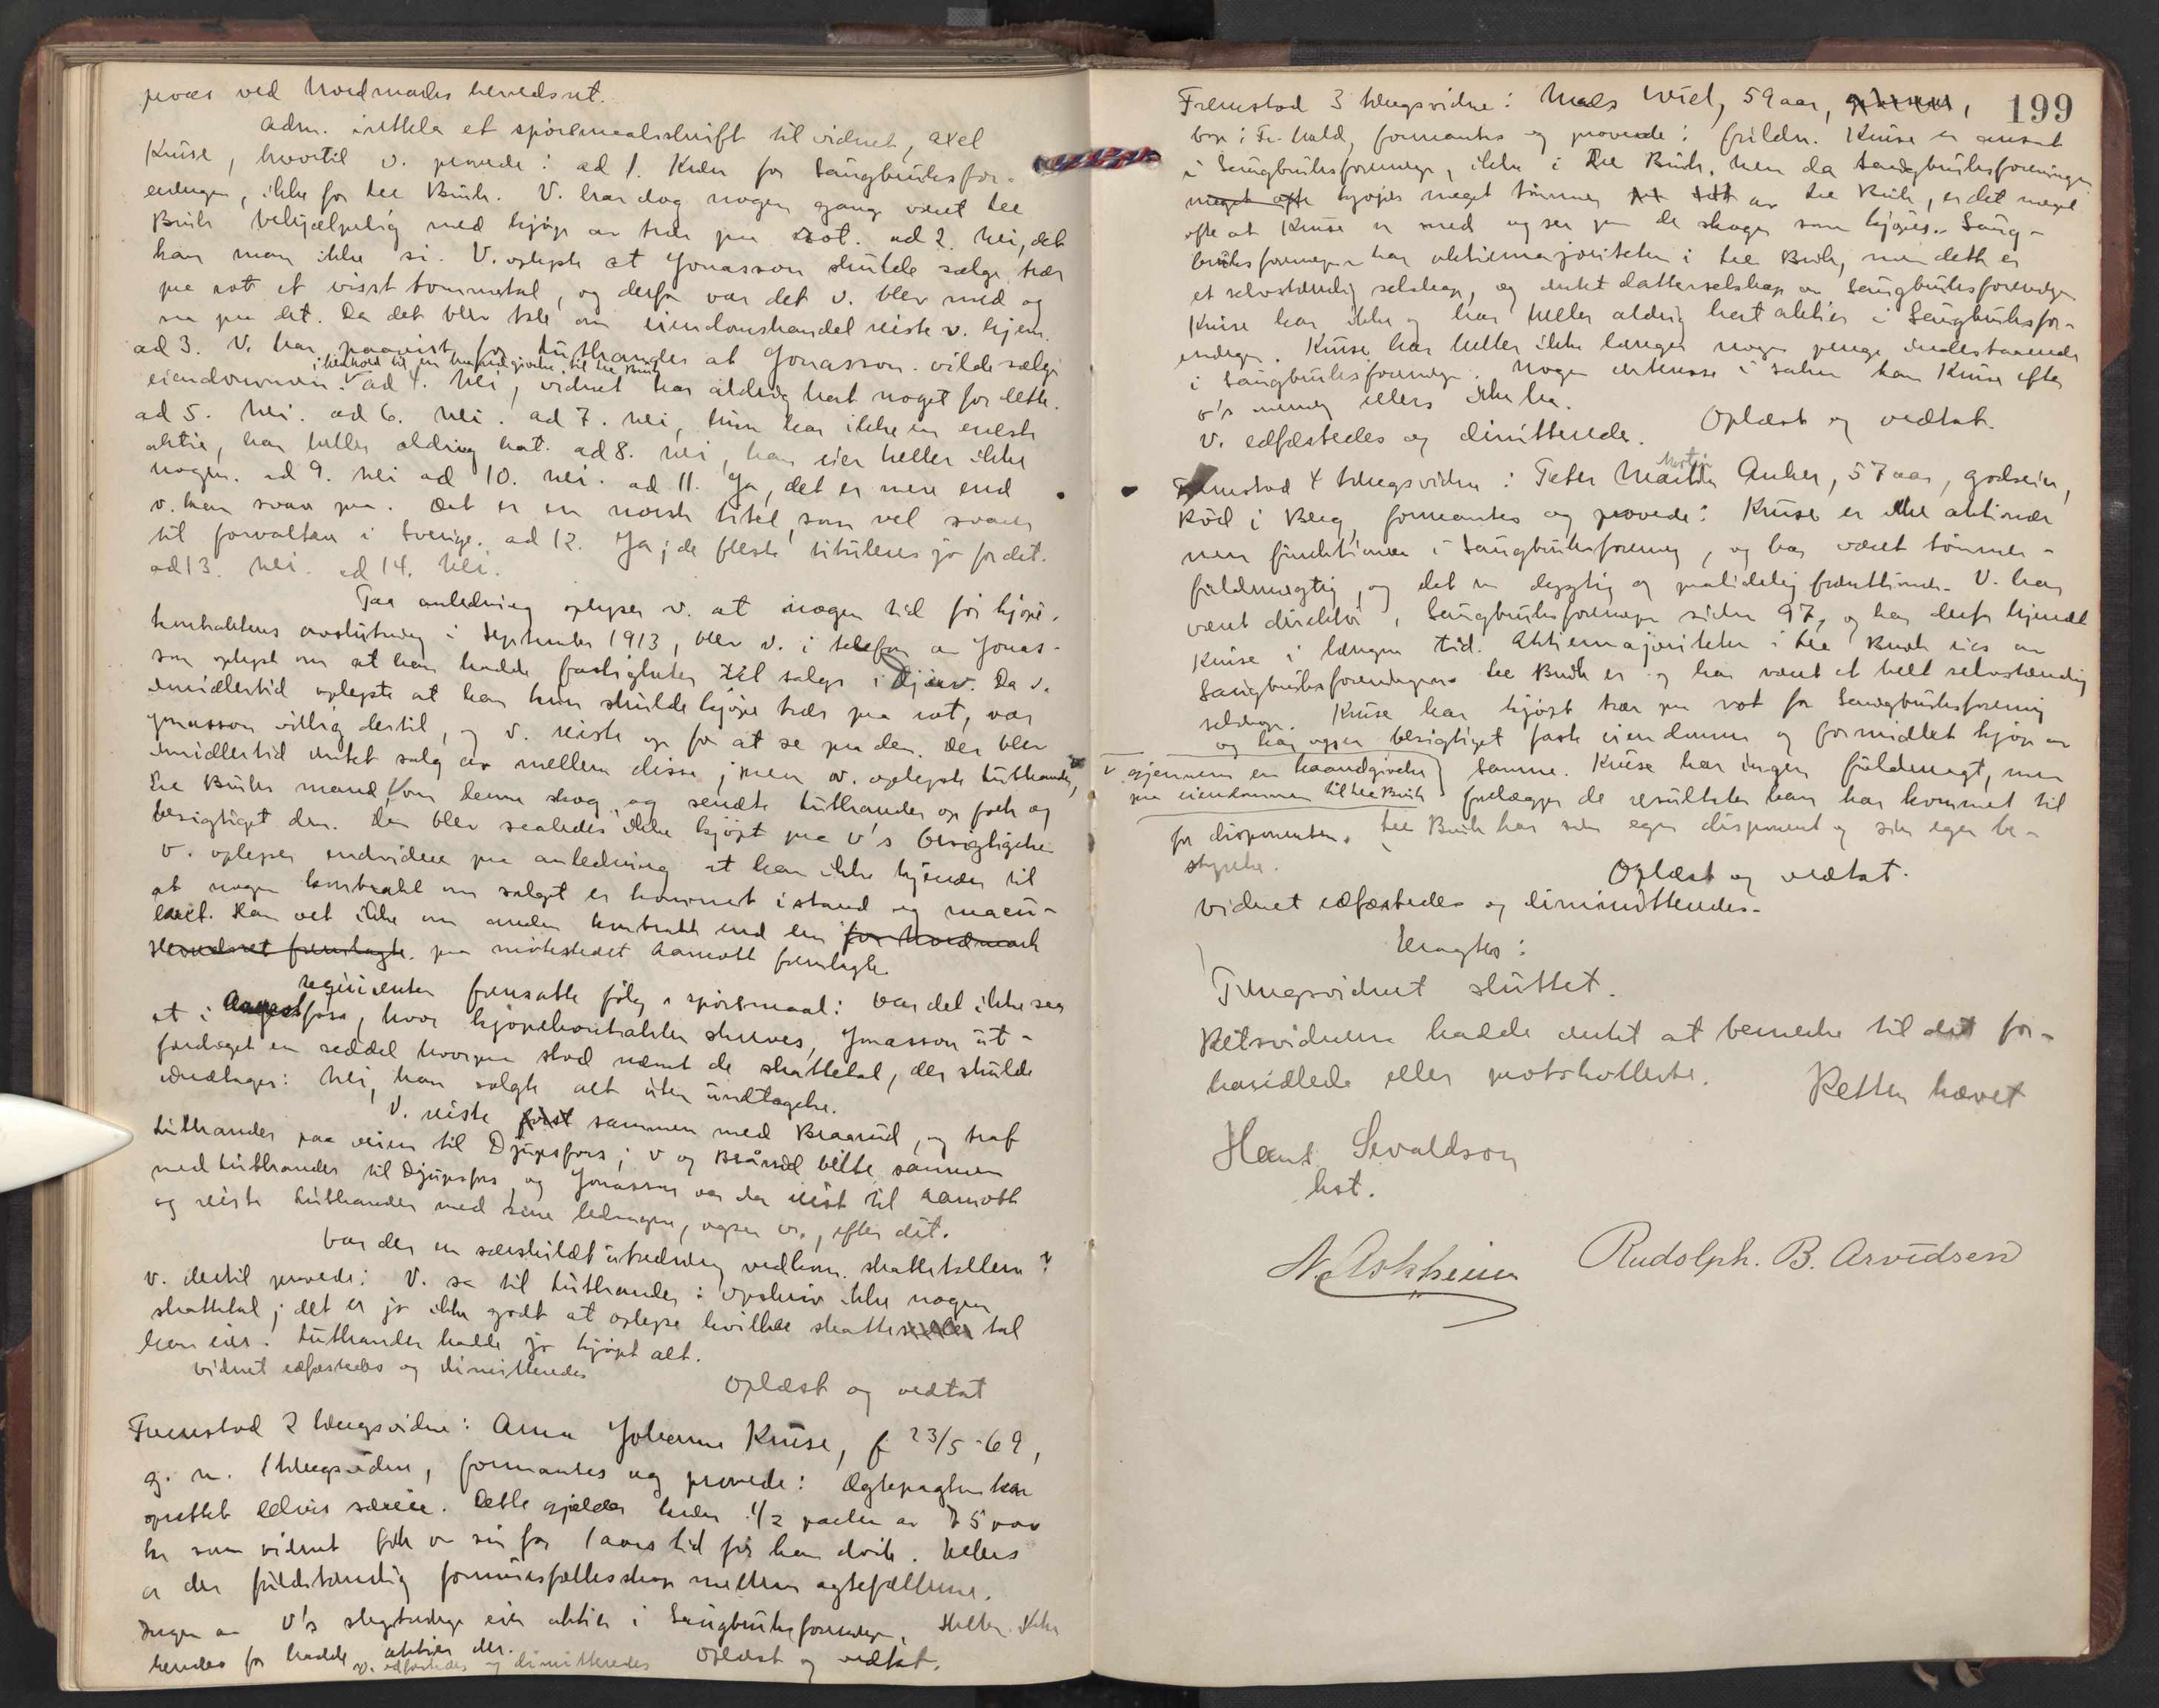 ved Nordmarks heredsret.
Adm. irettela et spörsmaalsskrift til vidnet, Axel
Kruse, hvortil v. provede: ad 1. Kun for Saugbruksfor-
eningen, ikke for Lee Bruk. V. har dog nogen gang været Lee
Bruk behjælpelig med kjøp av trær paa rot. ad 2. Nei, det
kan man ikke si. V. oplyste at Jonasson skulde sælge trær
paa rot et visst tommetal, og derfor var det v. blev med og
saa paa det. Da det blev tale om eiendomshandel reiste v. hjem.
ad 3. V. har paavist for Luthander at Jonasson vilde sælge
i henhold til en haandgivelse til Lee Bruk
eiendommen. ad 4. Nei, vidnet har aldrig hørt noget for dette.
ad 5. Nei. ad 6. Nei. ad 7. Nei, hun har ikke en eneste
aktie, har heller aldrig hat. ad 8. Nei, han eier heller ikke
nogen. ad 9. Nei ad 10. Nei. ad 11. Ja, det er mere end
v. kan svare paa. Det er en norsk titel, som vel svarer
til forvaltare i Sverige. ad 12. Ja; de fleste tituleres jo for det.
ad 13. Nei. ad 14. Nei.
Paa anledning oplyser v. at nogen tid før kjøpe-
kontraktens avslutning i September 1913, blev v. i telefon av Jonas-
son oplyst om at han hadde fastigheter til salgs i Djurv. Da v.
imidlertid oplyste at han kun skulde kjøpe trær paa rot, var
Jonasson villig dertil, og v. reiste op for at se paa den. Der blev
imidlertid intet salg av mellem disse; men v. oplyste Luthander,
Lee Bruks mand, om denne skog, og sendte Luthander op folk og
besigtiget den. Den blev saaledes ikke kjøpt paa v's besigtigelse.
V. oplyser endvidere paa anledning at han ikke kjender til
at nogen kontrakt om salget er kommet istand og
Han vet ikke om anden kontrakt end den for Nordmark
Heredsret fremlagte. paa møtestedet Aamott fremlagte
Requirenten fremsatte følg. spörsmaal: Var det ikke saa
at i fors, hvor kjøpekontrakten skreves, Jonasson ut-
fordraget en seddel hvorpaa stod nævnt de skattetal, der skulde
undtages: Nei, han solgte alt uten undtagelse.
V. reiste først sammen med Braarud, og traf
Luthander paa veien til Djupsfors; v og Braarud biltte sammen
med Luthander til Djupsfors, og Jonasson var da reist til Aamott
og reiste Luthander med sine ledsagere, ogsaa v., efter dit.
Var der en særskildt utredning vedkom. skattetallene?
V. dertil provede: V. sa til Luthander: opskriv ikke nogen
skattetal; det er jo ikke godt at oplyse hvilke skattesedler tal
han eier. Luthander hadde jo kjøpt alt.
Vidnet edfæstedes og dimitteredes
Oplæst og vedtat
Fremstod 2 tingsvidne: Anna Johanne Kruse, f 23/5-69,
g. m. 1 tingsvidne, formantes og provede: Ægtepagten har
oprettet delvis særeie. Dette gjelder kun 1/2 parten av 75000
kr som vidnet fik av sin far 1 aars tid før han døde. Ellers
er der fuldstændig formuesfællesskap mellem ægtefællerne.
Ingen av V's slegtninge eier aktier i Saugbruksforeningen. Heller ikke
hendes far hadde aktier der. Oplæst og vedtat.
v. edfæstedes og dimitteredes
199
Fremstod 3 tingsvidne: Mads Wiel, 59 aar,
bop. i Fr. hald, formantes og provede: fuldm. Kruse er ansat
i Saugbruksforeningen, ikke i Lee Bruk. Men da Saugbruksforeningen
meget ofte kjøper meget tømmer av Lee Bruk, er det meget
ofte at Kruse er med og ser paa de skoger som kjøpes. Saug-
bruksforeningen har aktiemajoriteten i Lee Bruk, men dette er
et selvstændig selskap, og intet datterselskap av Saugbruksforeningen
Kruse har ikke og har heller aldrig hat aktier i Saugbruksfor-
eningen. Kruse har heller ikke længer nogen penge indestaaende
i Saugbruksforeningen. Nogen interesse i saken kan Kruse efter
v's mening ellers ikke ha.
V. edfæstedes og dimitterede. Oplæst og vedtat.
Martin
Fremstod 4 tingsvidne: Peter Anker, 57 aar, godseier,
Röd i Berg, formantes og provede: Kruse er ikke aktionær
men funktionær i Saugbruksforening, og har været tømmer-
fuldmægtig, og det en dygtig og paalidelig funktionær. V. har
været direktör i Saugbruksforeningen siden 97, og har derfor kjendt
Kruse i længere tid. Aktiemajoriteten i Lee Bruk eies av
Saugbruksforeningen. Lee Bruk er og har været et helt selvstændig
selskap. Kruse har kjøpt trær paa rot for Saugbruksforening
og har ogsaa besigtiget faste eiendomme og formidlet kjøp av
v gjennem en haandgivelse samme. Kruse har ingen fuldmagt, men
paa eiendommen til Lee Bruk forelægger de resultater han har kommet til
for disponenten. Lee Bruk har sin egen disponent og sin egen be-
styrelse.
Oplæst og vedtat.
Vidnet edfæstedes og dimimitteredes.
Eragtes:
Tingsvidnet sluttet.
Retsvidnerne hadde intet at bemerke til det for-
handlede eller protokollerte.
Retten hævet
Hans Sevaldson
kst.
N. Askheim Rudolph. B. Arvidsen